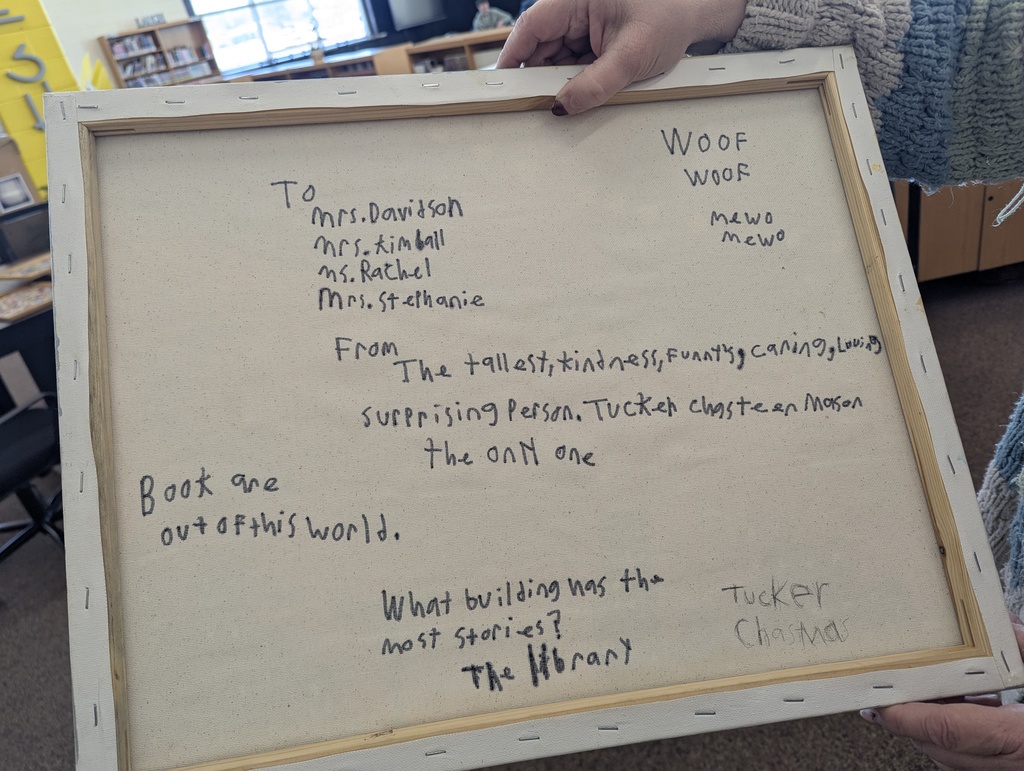 WOOF
WOOF
mewo
mewo
To
Mrs. Davidson
Mrs. Kimball
Ms. Rachel
Mrs. Stephanie
From
The tallest, kindness, Funny's, caring, Loving
surprising Person. Tucker Chasteen Mason
the only one
Book are
out of this world.
What building has the
most stories?
The library
Tucker